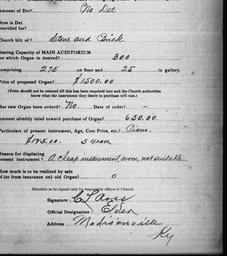 Amount of Debt No Debt
How is Debt
provided for?
Church built of? Stone and Brick
Seating Capacity of MAIN AUDITORIUM
for which Organ is desired? 300
comprising 275 on floor and 25 in gallery.
Price of proposed Organ? $1500.00
(Form should not be returned till this has been enquired into and the Church authorities
know what the instrument they desire to purchase will cost.)
Has new Organ been ordered? No. Date of order? —
Amount already raised toward purchase of Organ? 650.00
Particulars of present instrument, Age, Cost Price, etc.? Piano.
$175.00. 5 years
Reason for displacing
present instrument? A cheap instrument, worn, not suitable
How much is to be realized by sale
of (or from insurance on) old Organ? 0
Schedule to be signed only by responsible officer of Church.
Signature
Official Designation Elder
Address Madisonville
Ky